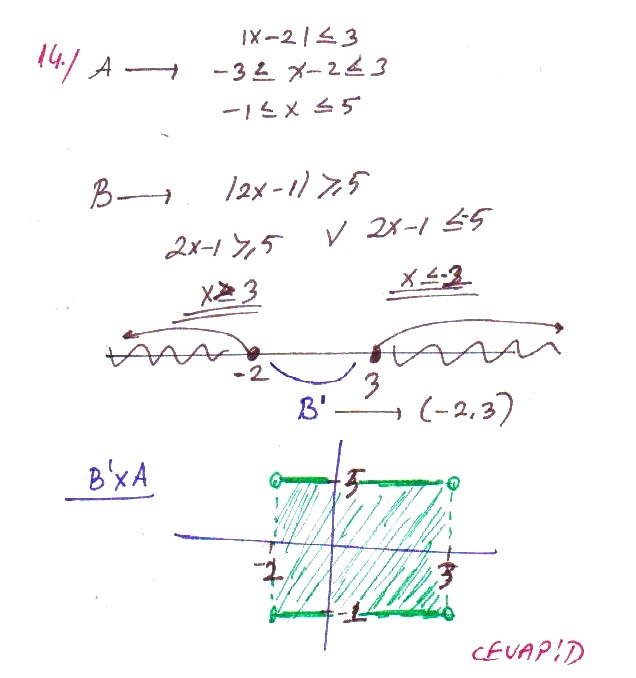 14./ A → |x-2| ≤ 3
-3 ≤ x-2 ≤ 3
-1 ≤ x ≤ 5
B → |2x-1| ≥ 5
2x-1 ≥ 5 ∨ 2x-1 ≤ -5
x ≥ 3 x ≤ -2
-2 3
B' → (-2, 3)
B'xA
5
-2 3
-1
CEVAP:D